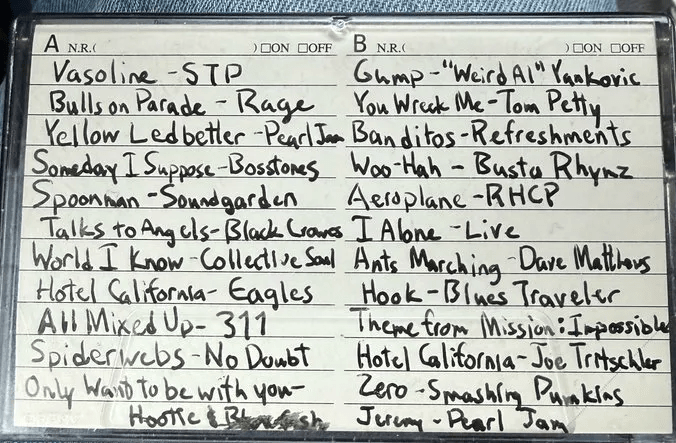 A N.R.( ) □ON □OFF
Vasoline - STP
Bulls on Parade - Rage
Yellow Ledbetter - Pearl Jam
Someday I Suppose - Bosstones
Spoonman - Soundgarden
Talks to Angels - Black Crowes
World I Know - Collective Soul
Hotel California - Eagles
All Mixed Up - 311
Spiderwebs - No Doubt
Only Want to be with you -
Hootie & Blowfish
B N.R.( ) □ON □OFF
Gump - "Weird Al" Yankovic
You Wreck Me - Tom Petty
Banditos - Refreshments
Woo-Hah - Busta Rhymz
Aeroplane - RHCP
I Alone - Live
Ants Marching - Dave Matthews
Hook - Blues Traveler
Theme from Mission: Impossible
Hotel California - Joe Tritschler
Zero - Smashing Pumkins
Jeremy - Pearl Jam